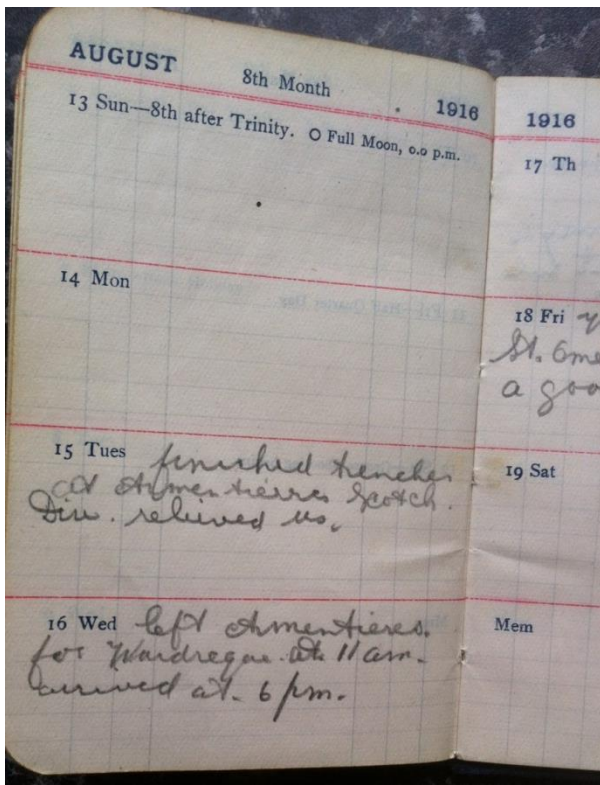 AUGUST 8th Month 1916
13 Sun—8th after Trinity. O Full Moon, 0.0 p.m.
14 Mon
15 Tues finished trenches
at Armentierres Scotch.
Div. relieved us.
16 Wed left Armentieres.
for Wardregue. at. 11 am.
arrived at. 6 pm.
1916
17 Th
18 Fri
St. Ome
a goo
19 Sat
Mem